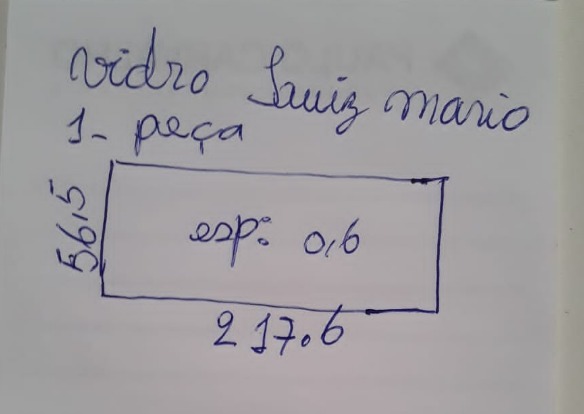 vidro Luiz mario
1- peça
56,5
esp: 0,6
217.6